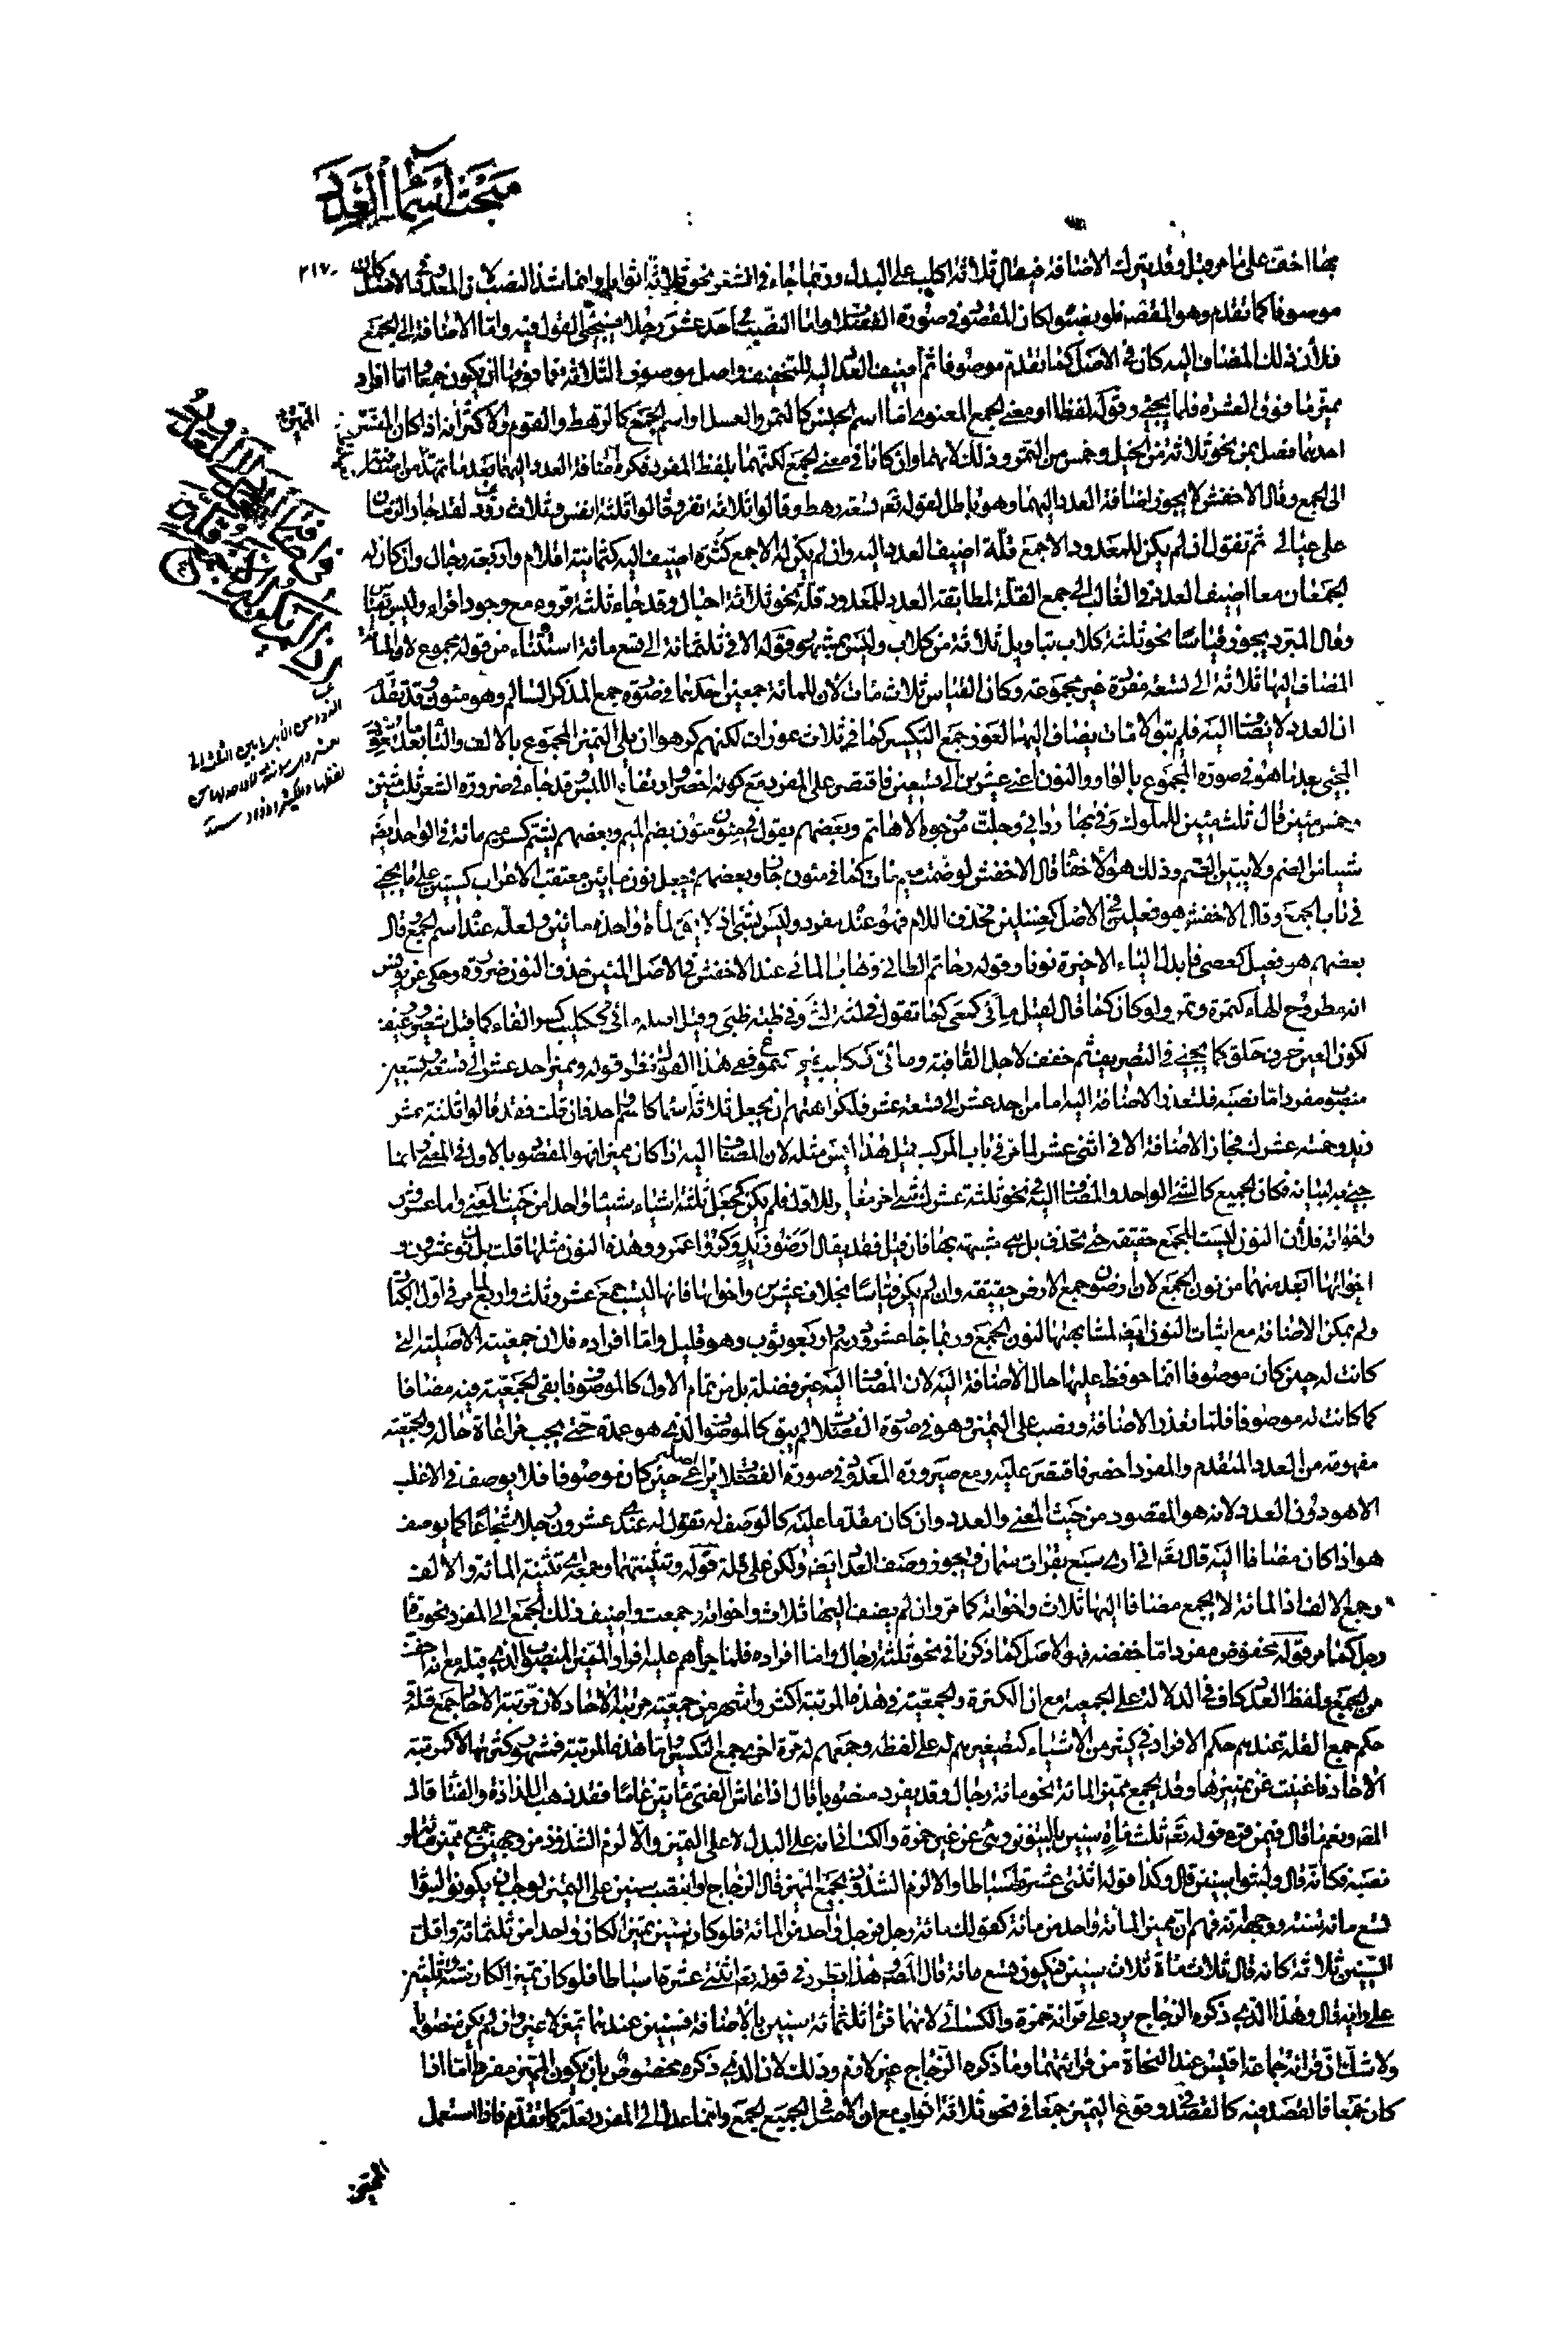 مبحث اسماء العدد
بها اخف على ما مر وقد يترك الاضافة فيقال ثلاثة اكلب على البدل وربما جاء فى الشعر نحو ثلاثة اثوابا وانما شذ النصب لان المعدود فى الاصل كان
موصوفا كما تقدم وهو المقصود فلو نصب لكان المقصود فى صورة الفضلات واما النصب فى احد عشر رجلا فيجئ القول فيه واما الاضافة الى الجمع
فلان ذلك المضاف اليه كان فى الاصل كما تقدم موصوفا ثم اضيف العدد اليه للتخفيف واصل موصوف الثلاثة فما فوقها ان يكون جمعا واما افراد
مميز ما فوق العشرة فلما يجئ وقوله لفظا او معنى الجمع المعنوى اما اسم الجنس كالتمر والعسل او اسم الجمع كالرهط والقوم والاكثر انه اذا كان المفسر
احدهما فصل بمن نحو ثلاثة من الخيل وخمس من التمر وذلك لانهما وان كانا فى معنى الجمع لكنهما بلفظ المفرد فكره اضافة العدد اليهما بعد ما تمهد من اضافته
الى الجمع وقال الاخفش لا يجوز اضافة العدد اليهما وهو باطل لقوله تعم تسعة رهط وقالوا ثلاثة نفر وقالوا ثلثة انفس وثلاث ذود لقد جار الزمان
على عيالى ثم تقول ان لم يكن للمعدود الا جمع قلة اضيف العدد اليه وان لم يكن له الا جمع كثرة اضيف اليه كثمانية اقلام واربعة رجال وان كان له
الجمعان معا اضيف العدد فى الغالب الى جمع القلة لمطابقة العدد للمعدود قلة نحو ثلاثة اجبال وقد جاء ثلثة قروء مع وجود اقراء وليس بقياس
وقال المبرد يجوز قياسا نحو ثلثة كلاب بتاويل ثلاثة من كلاب وليس بمشهور وقوله الا فى ثلثمائة الى تسع مائة استثناء من قوله مجموع لان المائة
المضاف اليها ثلاثة الى تسعة مفردة غير مجموعة وكان القياس ثلاث مئات لان للمائة جمعين احدهما فى صورة جمع المذكر السالم وهو مئون وقد تقدم
ان العدد لا يضاف اليه فلم يبق الا مئات يضاف اليها
المجئ بعد ما هو فى صورة المجموع بالواو والنون اعنى عشرين الى تسعين فاقتصر على المفرد مع كونه اخصر وارتفاع اللبس وقد جاء فى ضرورة الشعر ثلث مئين
وخمس مئين قال ثلث مئين للملوك وفى بها ردائى وجلت من وجوه الاهاتم وبعضهم يقول فى مئون مئون بضم الميم وبعضهم يشم كسر ميم مائة فى الواحد ايضا
شيئا من الضم ولا يبين الضم وذلك هو الاخفا قال الاخفش لو ضمت ميم مئات كما فى مئون جاز وبعضهم يجعل نون مائين معتقب الاعراب كسنين على ما يجئ
فى باب الجمع وقال الاخفش هو فعلين فى الاصل كغسلين محذوف اللام فهو عنده مفرد وليس بشئ اذ لا يق لمائة واحدة مائين ولعله عنده اسم الجمع وقال
بعضهم هو فعيل كعصى فابدل الياء الاخيرة نونا وقوله وحاتم الطائى وهاب المائى عند الاخفش فى الاصل المئين حذف النون ضرورة وحكى عن يونس
انه مطروح الهاء كتمرة وتمر ولو كان كما قال لقيل مأى كمعى كما تقول فى لثة
لكون العين حرف حلق كما يجئ فى التصريف ثم خفف لاجل القافية
منصوب مفرد اما نصبه فلتعذر الاضافة اليه اما من احد عشر الى تسعة عشر فلكراهتهم ان يجعل ثلاثة اسماء كاسم واحد فان قلت فقد قالوا ثلثة عشر
زيد وخمسة عشرك فجاز الاضافة الا فى اثنى عشر لما مر فى باب المركب قيل هذا ليس مثله لان المضاف اليه اذا كان مميزا فهو المقصود بالاول فى المعنى وانما
جئ به لبيانه فكان الجميع كالشئ الواحد والمضاف اليه فى نحو ثلثة عشرك شئ اخر مغاير للاول فلم يكن كجعل ثلثة اشياء شيئا واحدا من حيث المعنى واما عشرون
واخواته فلان النون ليست للجمع حقيقة حتى تحذف بل هى شبيهة بها فان قيل فقد يقال ارضو زيد وكرو عمرو وهذه النون مثلها قلت بل نون عشرون و
اخواتها ابعد منهما من نون الجمع لان ارضون جمع الارض حقيقة وان لم يكن قياسا بخلاف عشرين واخواتها فانها ليست جمع عشر وثلث واربع لما مر فى اول الكتاب
ولم يمكن الاضافة مع اثبات النون ايضا لمشابهتها لنون الجمع وربما جاء عشرو درهم واربعو ثوب وهو قليل واما افراده فلان جمعيته الاصلية التى
كانت له حين كان موصوفا انما حوفظ عليها حال الاضافة اليه لان المضاف اليه غير فضلة بل من تمام الاول كالموصوف فابقى الجمعية فيه مضافا
كما كانت له موصوفا فلما تعذر الاضافة ونصب على التمييز وهو فى صورة الفضلات لم يبق كالموصوف الذى هو عمدة حتى يجب مراعاة حاله والجمعية
مفهومة من العدد المتقدم والمفرد اخصر فاقتصر عليه ومع صيرورة المعدود فى صورة الفضلات يراعى اصله حين كان موصوفا فلا يوصف فى الاغلب
الا هو دون العدد لانه هو المقصود من حيث المعنى والعدد وان كان مقدما عليه كالوصف له تقول له عندى عشرون رجلا شجاعا كما يوصف
هو اذا كان مضافا اليه قال تعم انى ارى سبع بقرات سمان فيجوز وصف العدد ايضا ولكن على قلة قوله وتثنيتهما وجمعه اى تثنية المائة والالف
وجمع الالف اذ المائة لا يجمع مضافا اليها ثلاث واخواته كما مر وان لم يضف اليها ثلاث واخواته جمعت واضيف ذلك الجمع الى المفرد نحو مئات
رجل كما مر قوله مخفوض مفرد اما خفضه فهو الاصل كما ذكرنا فى نحو ثلثة رجال واما افراده فلما جرأهم عليه افراد المميز المنصوب الذى قبله مع انه اخف
من الجمع ولفظ العدد كاف فى الدلالة على الجمعية مع ان الكثرة والجمعية فى هذه المرتبة اكثر واشهر من جمعية مرتبة الاحاد لان مرتبة الاحاد جمع قلة و
حكم جمع القلة عندهم حكم الافراد فى كثير من الاشياء كتصغيرهم له على لفظه وجمعهم له مرة اخرى جمع التكسير واما هذه المرتبة فمشهور كثرتها لا كمرتبة
الاحاد فاغنت عن مميزها وقد يجمع مميز المائة نحو مائة رجال وقد يفرد منصوبا قال اذا عاش الفتى مائتين عاما فقد ذهب اللذاذة والفتاء قال
المص ونعم ما قال فيمن قرء قوله تعم ثلث مائة سنين بالتنوين وهى عن غير حمزة والكسائى انه على البدل لا على التمييز والا لزم الشذوذ من وجهين جمع مميز مائة و
نصبه فكانه قال ولبثوا سنين قال وكذا قوله اثنتى عشرة اسباطا والا لزم الشذوذ بجمع المميز قال الزجاج لو انتصب سنين على التمييز لوجب ان يكونوا لبثوا
تسع مائة سنة ووجهه انه فهم ان مميز المائة واحد من مائة كقولك مائة رجل فرجل واحد من المائة فلو كان سنين تمييزا لكان واحدا من ثلثمائة واقل
السنين ثلاثة فكانه قال ثلاث مائة ثلاث سنين فيكون تسع مائة قال المص وهذا يطرد فى قوله تعم اثنتى عشرة اسباطا فلو كان تمييزا لكان ستة وثلثين
على رايه قال وهذا الذى ذكره الزجاج يرد على قرائة حمزة والكسائى لانهما قرا ثلثمائة سنين بالاضافة فسنين عندهما تمييز لا غير وان لم يكن منصوبا
ولا شك ان قرائة جماعة اقيس عند النحاة من قرائتهما وما ذكره الزجاج غير لازم وذلك لان الذى ذكره مخصوص بان يكون المميز مفردا اما اذا
كان جمعا فالقصد فيه كالقصد فى وقوع التمييز جمعا فى نحو ثلاثة اثواب مع ان الاصل فى الجميع الجمع وانما عدل الى المفرد لعلة كما تقدم فاذا استعمل